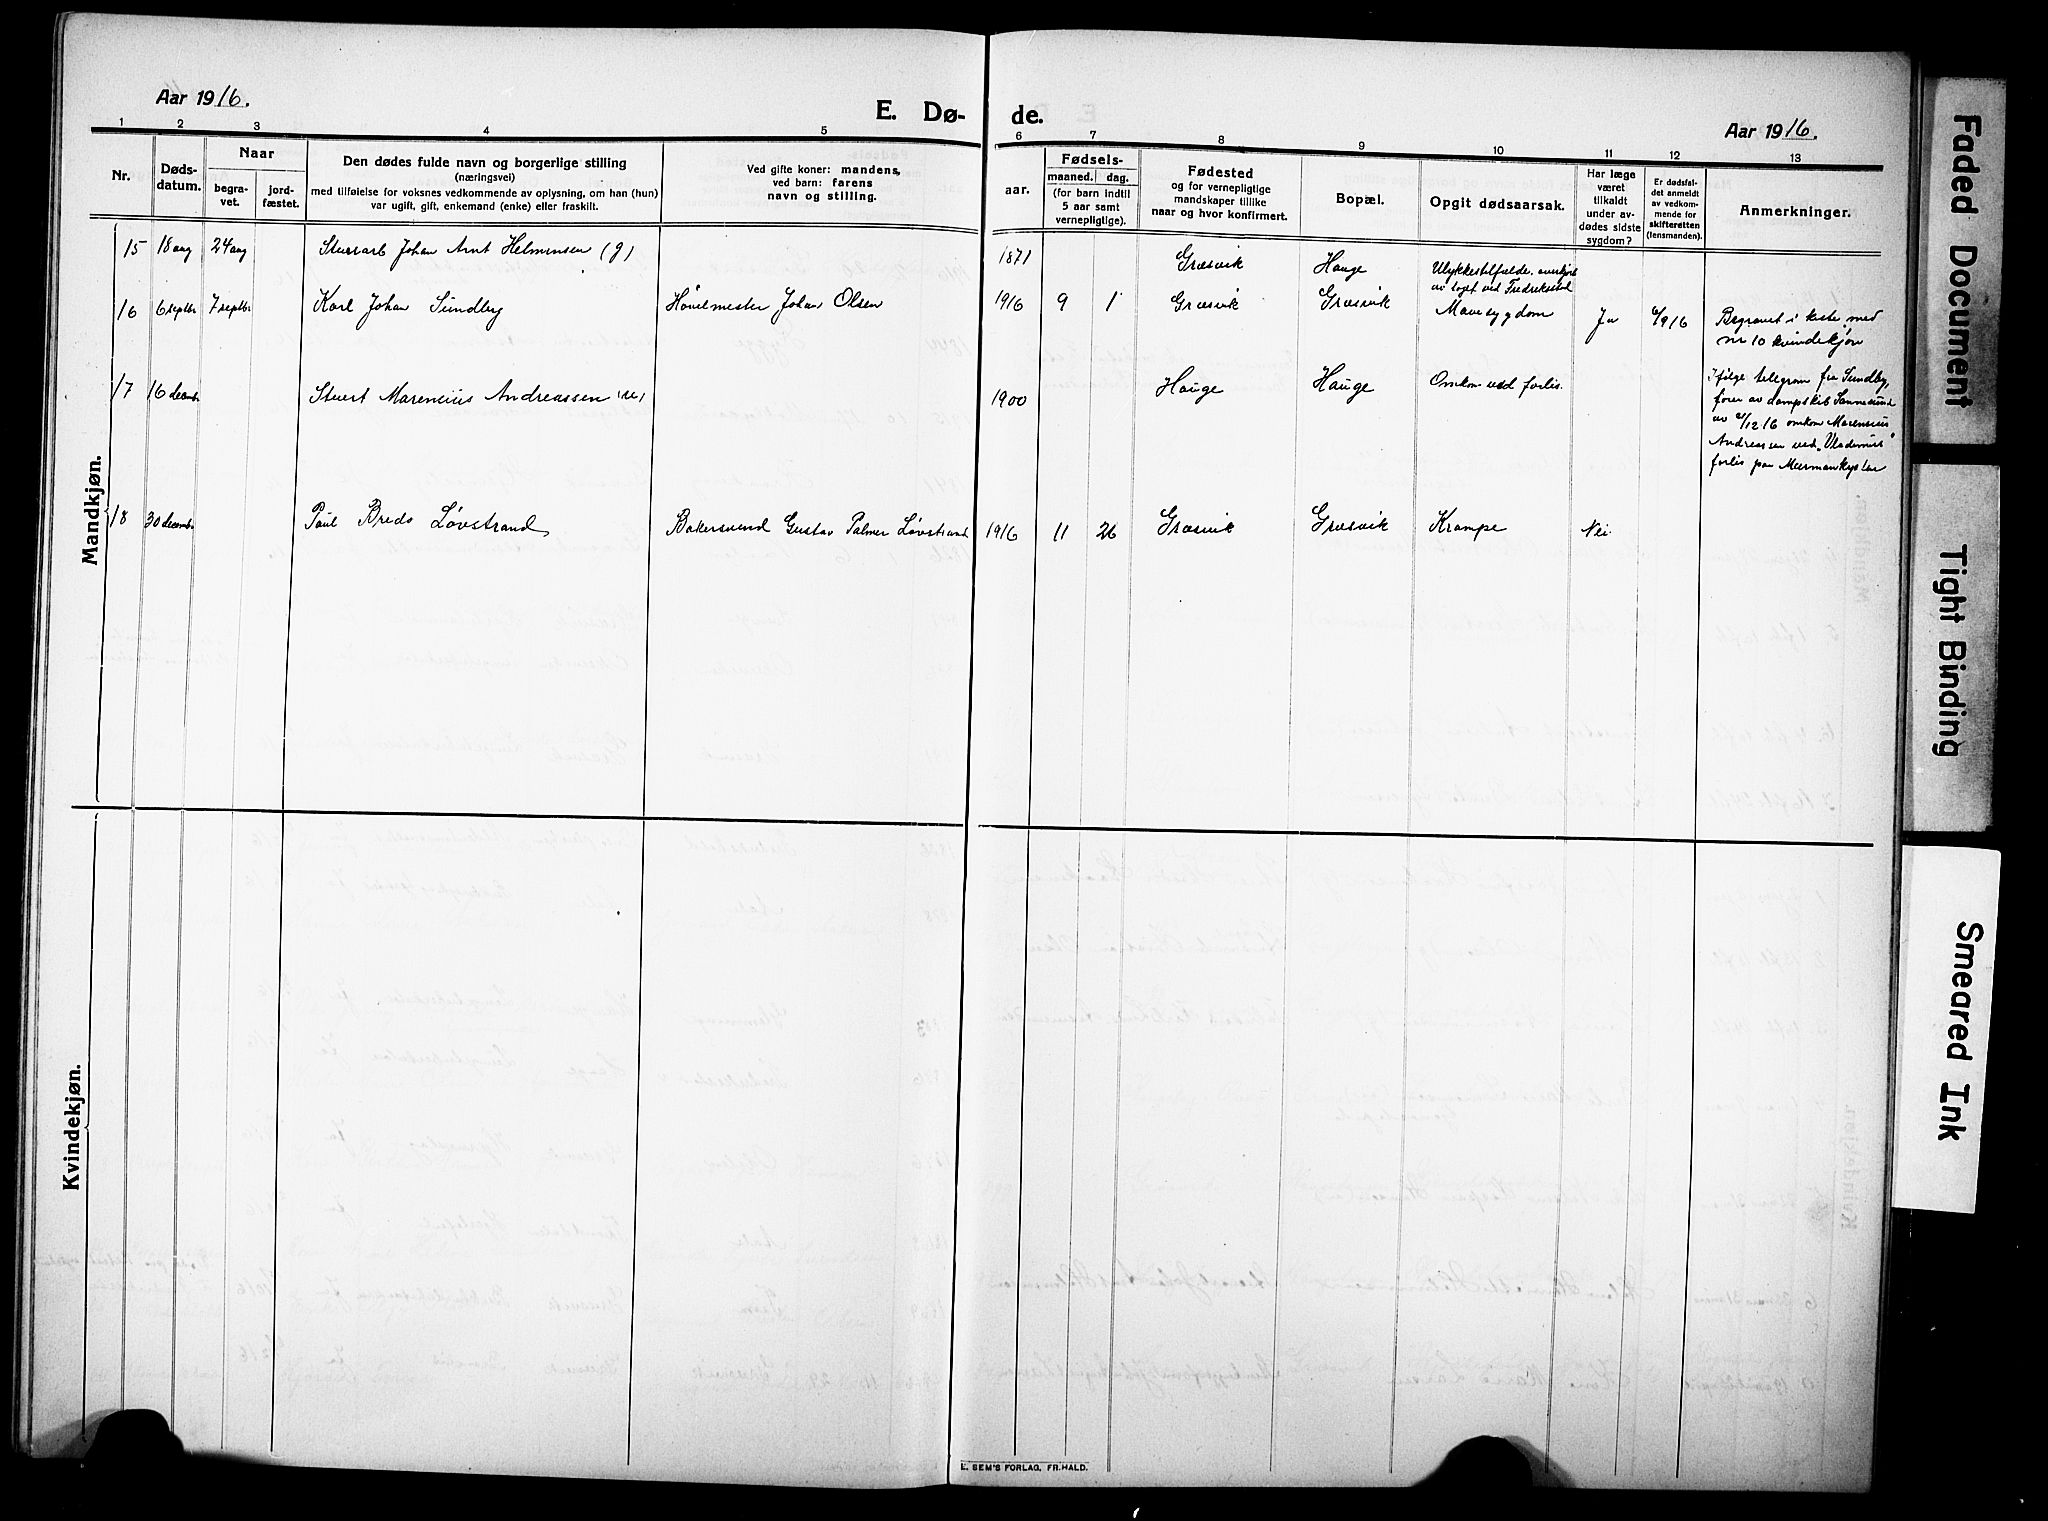 Aar 1916.
E. Dø-
de.
Aar 1916.
1 2 3 4 5 6 7 8 9 10 11 12 13
Nr.
Døds-
datum.
Naar
begra-
vet.
jord-
fæstet.
Den dødes fulde navn og borgerlige stilling
(næringsvei)
med tilføielse for voksnes vedkommende av oplysning, om han (hun)
var ugift, gift, enkemand (enke) eller fraskilt.
Ved gifte koner: mandens,
ved barn: farens
navn og stilling.
aar.
Fødsels-
maaned. dag.
(for barn indtil
5 aar samt
vernepligtige).
Fødested
og for vernepligtige
mandskaper tillike
naar og hvor konfirmert.
Bopæl.
Opgit dødsaarsak.
Har læge
været
tilkaldt
under av-
dødes sidste
sygdom?
Er dødsfal-
det anmeldt
av vedkom-
mende for
skifteretten
(lensmanden).
Anmerkninger.
Mandkjøn.
15 18 aug 24 aug Stuerarb Johan Arnt Helmensen (g) 1871 Græsvik Hauge Ulykkestilfælde. overkjørt
av toget ved Fredrikstad
16 6 septbr 7 septbr Karl Johan Sundberg Høvelmester Johan Olsen 1916 9 1 Græsvik Græsvik Mavesygdom Ja 6/9 16 Begravet i kiste med
nr 10 kvindekjøn
17 16 decembr Stuert Marensius Andreassen (u) 1900 Hauge Hauge Omkom ved forlis. Ifølge telegram fra Sundby,
fører av dampskib Sannesund
av /12 16 omkom Marensius
Andreassen ved
forlis paa Murmankysten
18 30 decembr Paul Bredo Løvstrand Bakersvend Gustav Palmer Løvstrand 1916 11 26 Græsvik Græsvik Krampe Nei.
Kvindekjøn.
E. SEM'S FORLAG, FR.HALD.
Faded Document
Tight Binding
Smeared Ink